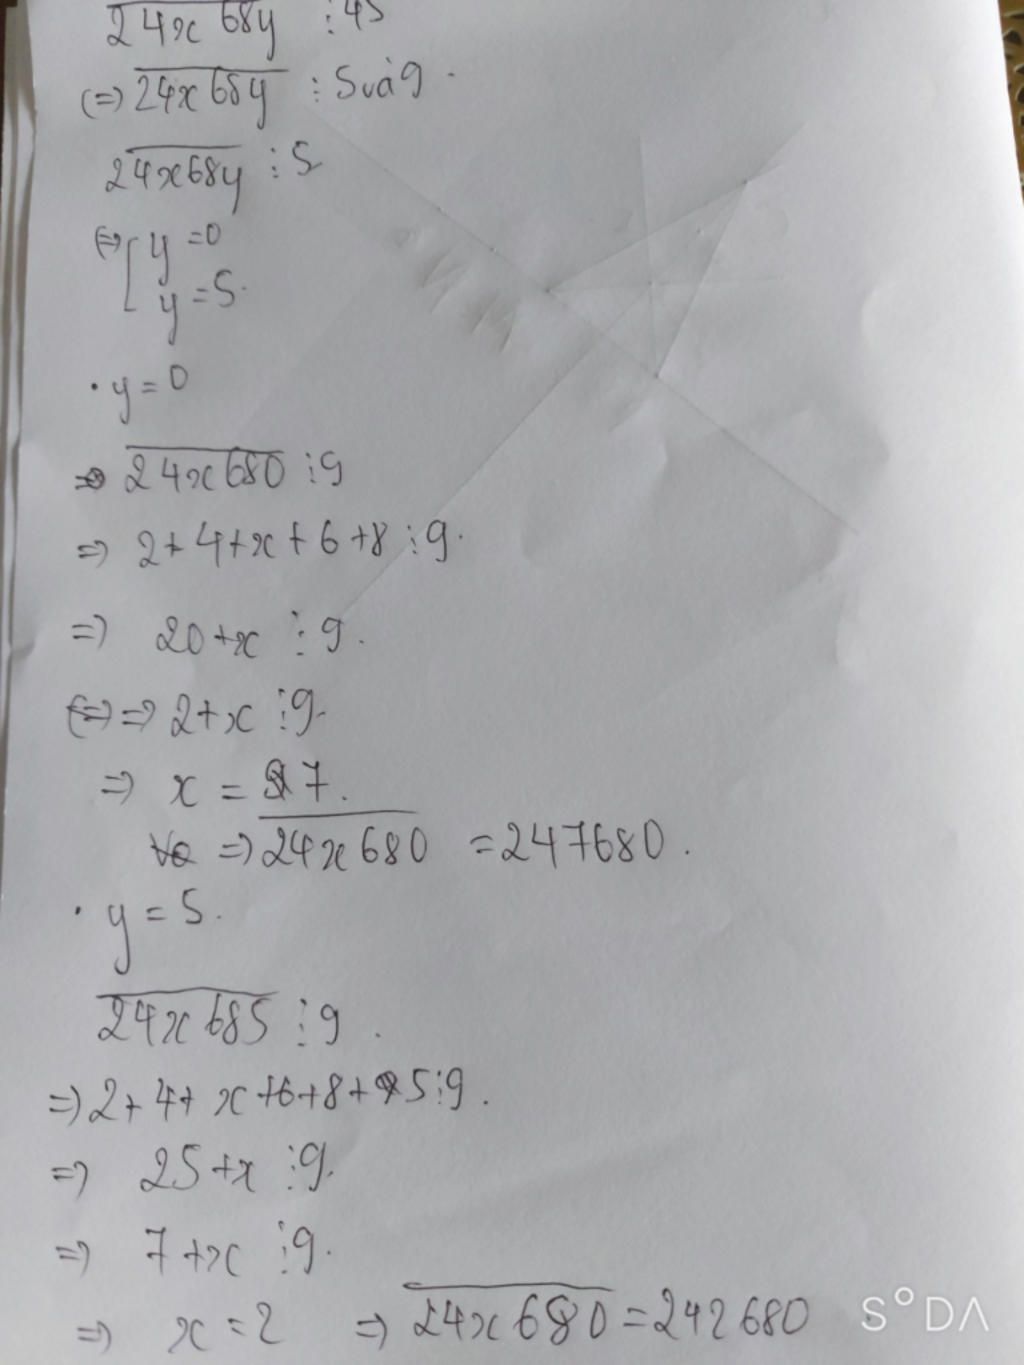 24x68y ⋮ 45
(=) 24x68y ⋮ 5 và 9.
24x68y ⋮ 5
(=) [ y = 0
y = 5.
• y = 0
=> 24x680 ⋮ 9
=> 2+4+x+6+8 ⋮ 9.
=> 20+x ⋮ 9.
=> 2+x ⋮ 9.
=> x = 7.
=> 24x680 = 247680.
• y = 5.
24x685 ⋮ 9.
=> 2+4+x+6+8+5 ⋮ 9.
=> 25+x ⋮ 9.
=> 7+x ⋮ 9.
=> x = 2 => 24x680 = 242680
S°DΛ